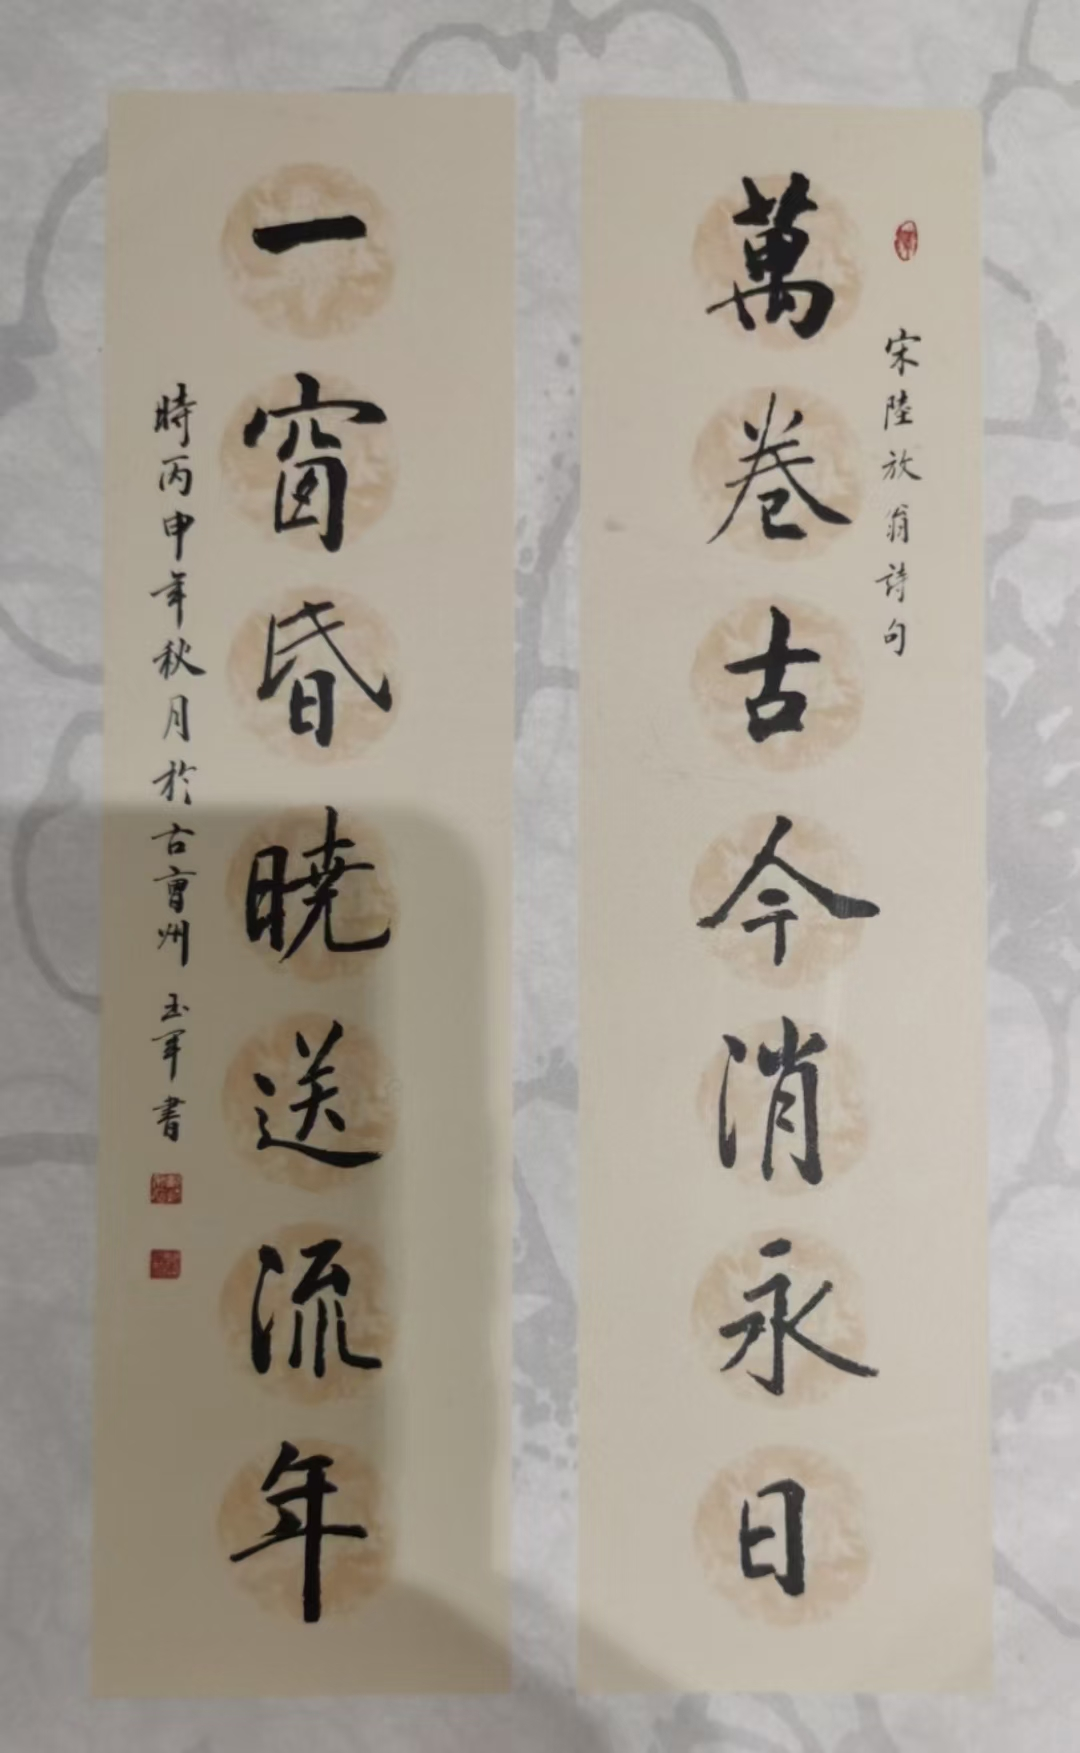 宋陸放翁詩句
萬卷古今消永日
一窗昏曉送流年
時丙申年秋月於古會州 玉軍書